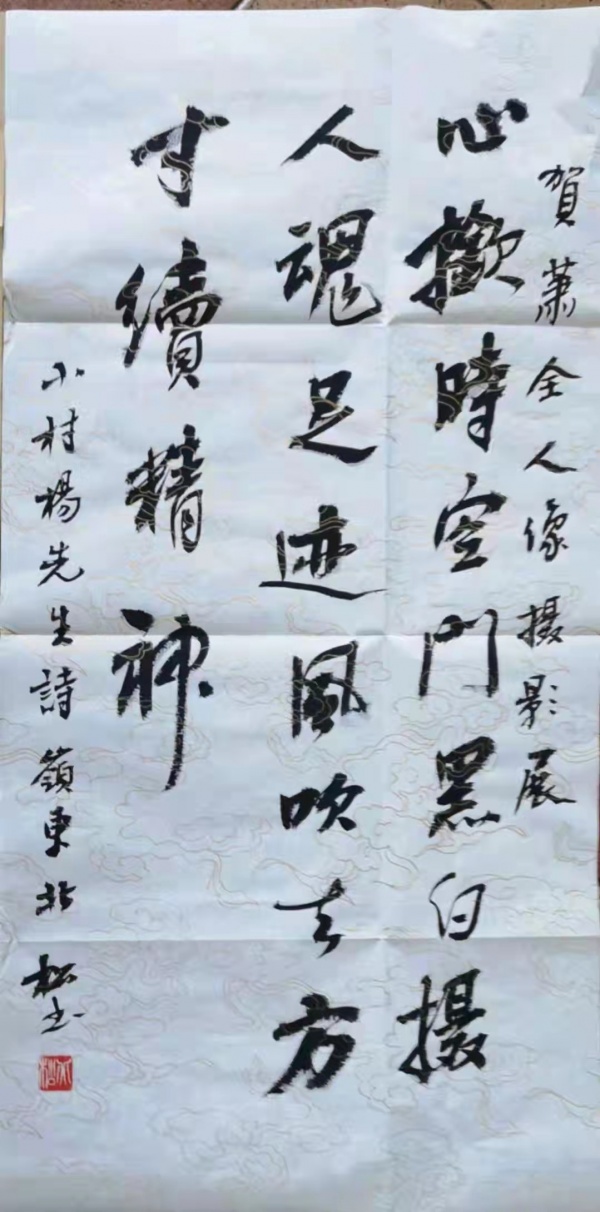 賀蕭全人像摄影展
心撳時空門黑白摄
人魂足迹風吹去方
寸續精神
小村楊先生詩嶺東松书